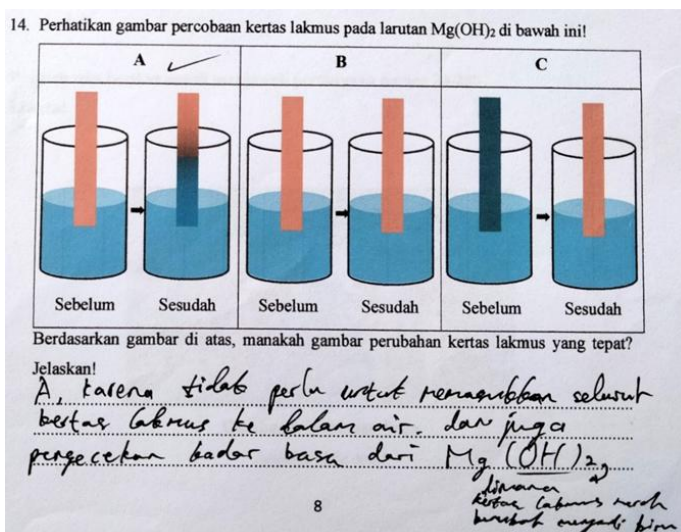 14. Perhatikan gambar percobaan kertas lakmus pada larutan Mg(OH)₂ di bawah ini!
A B C
Sebelum Sesudah Sebelum Sesudah Sebelum Sesudah
Berdasarkan gambar di atas, manakah gambar perubahan kertas lakmus yang tepat?
Jelaskan!
A, karena tidak perlu untuk memasukkan seluruh
kertas lakmus ke dalam air. dan juga
pengecekan kadar basa dari Mg(OH)₂,
dimana
kertas lakmus merah
berubah menjadi biru
8